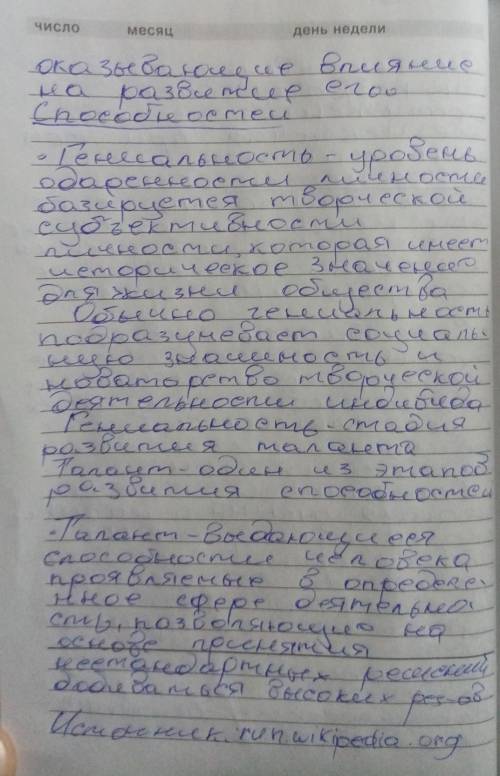 число месяц день недели
оказывающие влияние
на развитие его
способностей
• Гениальность - уровень
одаренности личности
базируется творческой
субъективности
личности, которая имеет
историческое значение
для жизни общества
Обычно гениальность
подразумевает социаль-
ную значимость и
новаторство творческой
деятельности индивида
Гениальность - стадия
развития таланта
Талант - один из этапов
развития способностей
• Талант - выдающиеся
способности человека
проявляемые в определе-
нное сфере деятельно-
сть, позволяющие на
основе принятия
нестандартных решений
добиваться высоких рез-ов
Источник: run.wikipedia.org